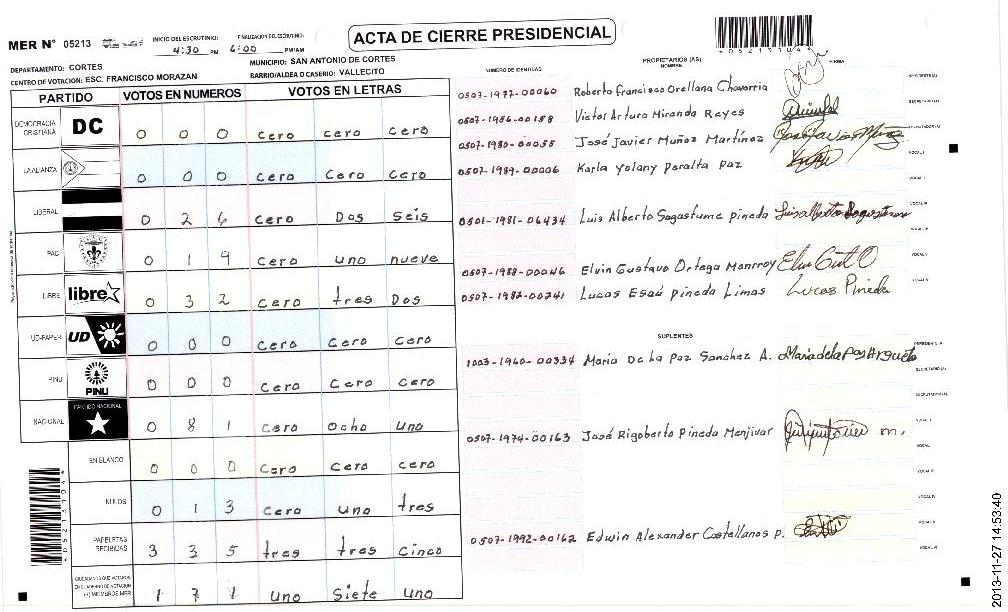 ACTA DE CIERRE PRESIDENCIAL
MER N° 05213
INICIO DEL ESCRUTINIO: 4:30 PM
FINALIZACIÓN DEL ESCRUTINIO: 6:00 PM/AM
DEPARTAMENTO: CORTES
MUNICIPIO: SAN ANTONIO DE CORTES
CENTRO DE VOTACION: ESC. FRANCISCO MORAZAN
BARRIO/ALDEA O CASERIO: VALLECITO
PARTIDO VOTOS EN NUMEROS VOTOS EN LETRAS
DEMOCRACIA CRISTIANA DC 0 0 0 cero cero cero
LA ALIANZA 0 0 0 Cero Cero Cero
LIBERAL 0 2 6 Cero Dos Seis
PAC 0 1 9 cero uno nueve
LIBRE libre 0 3 2 cero tres Dos
UD-FAPER UD 0 0 0 Cero Cero Cero
PINU PINU 0 0 0 Cero Cero Cero
NACIONAL PARTIDO NACIONAL 0 8 1 cero Ocho Uno
EN BLANCO 0 0 0 Cero Cero cero
NULOS 0 1 3 Cero uno tres
PAPELETAS RECIBIDAS 3 3 5 tres tres Cinco
CIUDADANOS QUE VOTARON EN CUADERNO DE VOTACION (+) MIEMBROS MER 1 7 1 Uno Siete Uno
NUMERO DE IDENTIDAD
PROPIETARIOS (AS)
NOMBRE
FIRMA
0507-1977-00060 Roberto Francisco Orellana Chavarria
0507-1986-00158 Victor Arturo Miranda Reyes
0507-1980-00055 José Javier Muñoz Martínez
0507-1989-00006 Karla Yolany Peralta Paz
0501-1981-06434 Luis Alberto Sagastume pineda
0507-1988-00046 Elvin Gustavo Ortega Monrroy
0507-1982-00241 Lucas Esaú Pineda Limas Lucas Pineda
SUPLENTES
1003-1960-00334 Maria De La Paz Sanchez A.
0507-1974-00163 José Rigoberto Pineda Menjivar
0507-1992-00162 Edwin Alexander Castellanos P.
2013-11-27 14:53:40